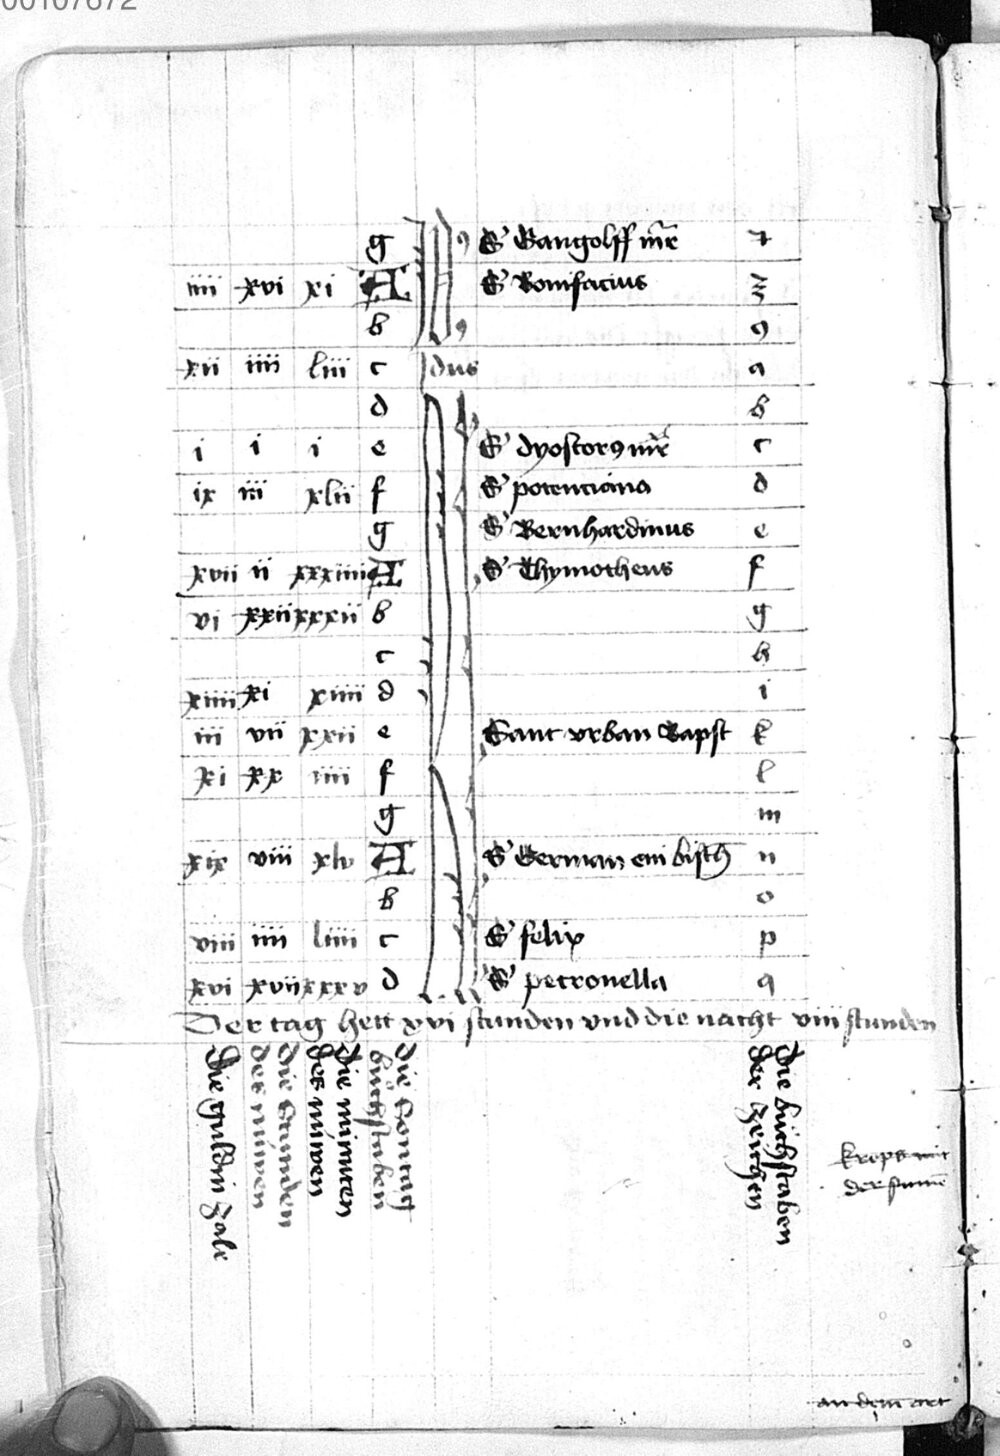 00107672
g S' Gangolff mr̄e
iiii xvi xi A S' Bonifacius
b 9
xii iiii liii c dus a
d b
i i i e S' dyoscor9 mr̄e c
ix iii xlii f S' potenciana d
g S' Bernhardinus e
xvii ii xxxiiii A S' Thymotheus f
vi xxii xxxii b g
c h
xiiii xi xiiii d i
iii vii xxii e Sant vrban Bapst k
xi xx iiii f l
g m
xix viii xlv A S' German ein bisch n
b o
viii iiii liiii c S' felix p
xvi xvii xxxv d S' petronella q
Der tag hett xvi stunden vnd die nacht viii stunden
Die guldin Zale
die Stunden
des nuwen
die minuten
des nuwen
die Sontag
buchstaben
die buchstaben
der Zeichen
kreps mit
der sunne
an dem art